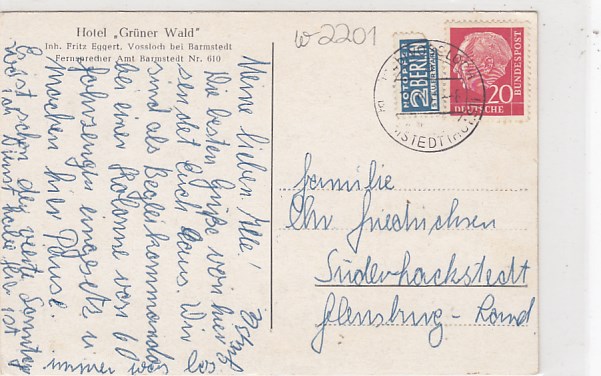 Hotel „Grüner Wald"
Inh. Fritz Eggert, Vossloch bei Barmstedt
Fernsprecher Amt Barmstedt Nr. 610
w2201
NOTOPFER
2 BERLIN
STEUERMARKE
DEUTSCHE
BUNDESPOST
20
Meine lieben Alle!
Die besten Grüße von hier
sendet Euch Hans. Wir
sind als Begleitkommando
bei einer Kolonne von 60
Fahrzeugen eingesetzt u.
machen hier Pause.
Es ist schon der vierte Sonntag
immer was los
Familie
Chr. Friedrichsen
Süderhackstedt
Flensburg-Land